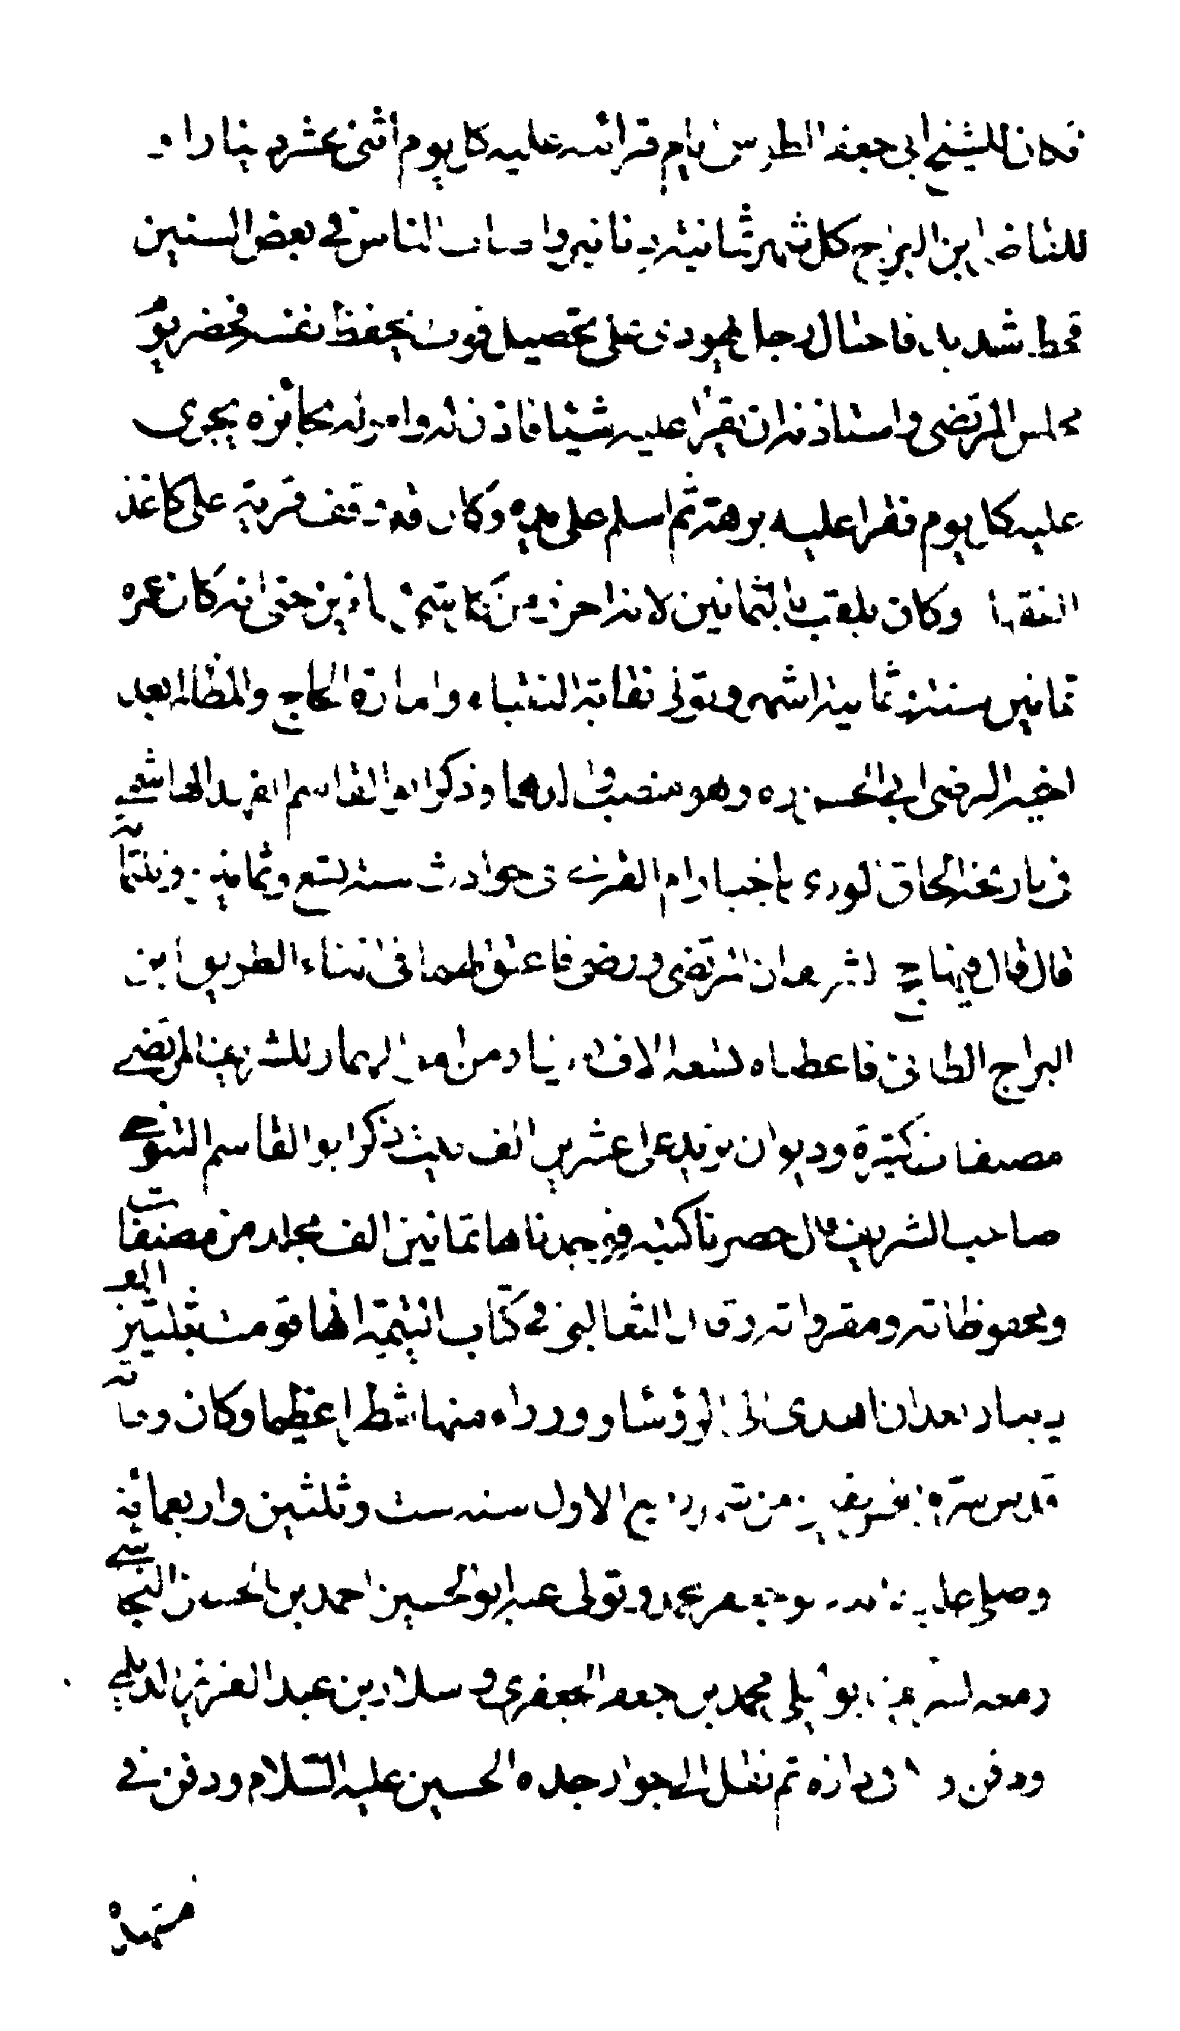 فكان للشيخ ابي جعفر الطوسي ايام قرائته عليه كل يوم اثنى عشر دينارا و
للقاضي ابن البراج كل شهر ثمانية دنانير واصاب الناس في بعض السنين
قحط شديد فاحتال رجل يهودي على تحصيل قوت يحفظ نفسه فحضر يوما
مجلس المرتضى واستاذنه ان يقرا عليه شيئا فاذن له وامر له بجائزه يجرى
عليه كل يوم فقرا عليه برهة ثم اسلم على يده وكان قد وقف قرية على كاغذ
الفقهاء وكان يلقب بالثمانين لانه احرز من كل شيء ثمانين حتى انه كان عمره
ثمانين سنة وثمانية اشهر وتولى نقابة النقباء وامارة الحاج والمظالم بعد
اخيه الرضى ابي الحسن ره وهو منصب والدهما وذكر ابو القاسم الفهد الهاشمي
في تاريخه اتحاف الورى باخبار ام القرى في حوادث سنة تسع وثمانين وثلثمائة
قال قال فيها حج الشريفان المرتضى ورضى فاعتق لهما في اثناء الطريق ابن
البراج الطائى فاعطياه تسعة الاف دينار من اموالهما وللشريف المرتضى
مصنفات كثيرة وديوان يزيد على عشرين الف بيت ذكر ابو القاسم التنوخي
صاحب الشريف قال حصرنا كتبه فوجدناها ثمانين الف مجلد من مصنفاته
ومحفوظاته ومقرواته وقال الثعالبي في كتاب اليتيمة انها قومت بثلثين الف
دينار بعد ان اهدى الى الرؤساء والوزراء منها شطرا عظيما وكان وفاته
قدس سره لخمس بقين من شهر ربيع الاول سنة ست وثلثين واربعمائة
وصلى عليه ابنه ابو جعفر محمد وتولى غسله ابو الحسين احمد بن الحسين النجاشي
ومعه الشريف ابو يعلى محمد بن جعفر الجعفري وسلار بن عبد العزيز الديلمي
ودفن اولا في داره ثم نقل الى جوار جده الحسين عليه السلام ودفن في
مشهده